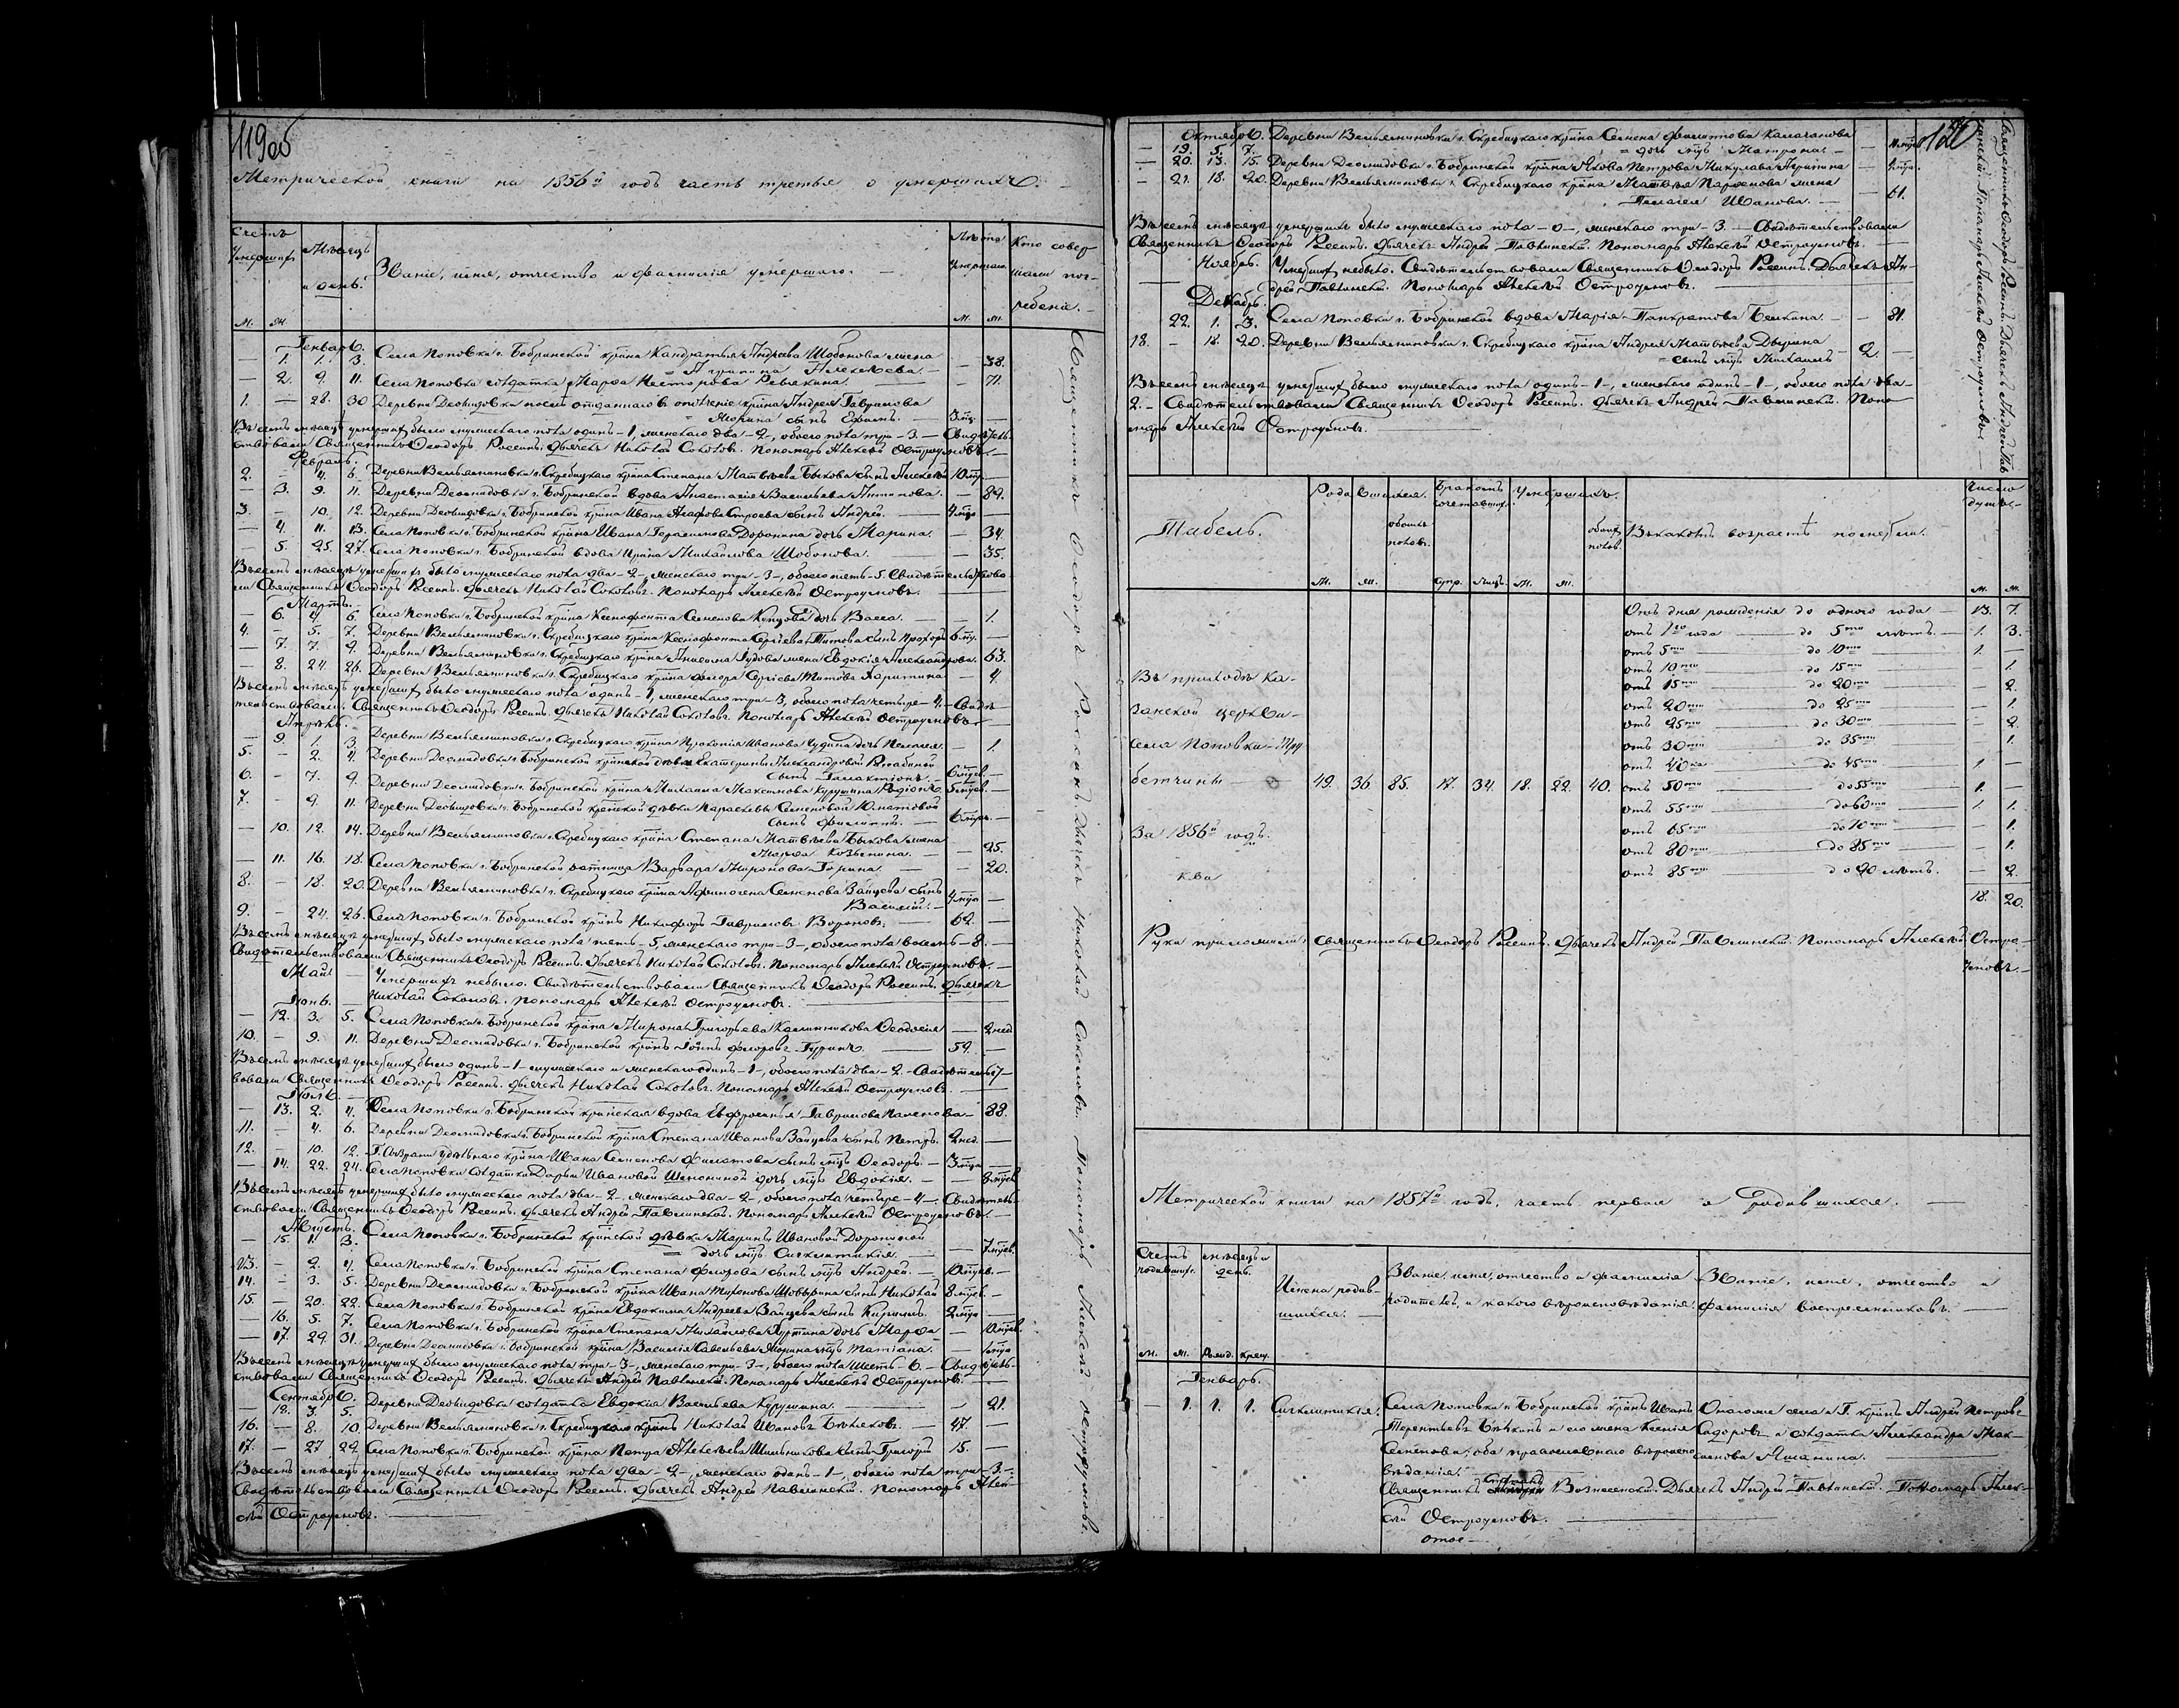 119об
Метрической книги на 1856й годъ часть третья о умершихъ.
Счетъ умершихъ
Мѣсяцъ и день.
Званіе, имя, отчество и фамилія умершаго.
Лѣта умершаго
Кто совершалъ погребеніе.
м. ж. м. ж.
Генварь.
— 1. 1. 3. Села Поповки г. Бобринской крѣна Кандратья Андреева Шобонова жена
Агрипина Алексѣева. — 38.
— 2. 9. 11. Села Поповки солдатка Марѳа Несторова Ревякина. — 71.
1. — 28. 30 Деревни Деомидовки послѣ отданнаго в ополченіе крѣна Андрея Гаврилова
Морина сынъ Ефимъ. 3 мц. —
Въ семъ мѣсяцѣ умершихъ было мужескаго пола одинъ - 1, женскаго два - 2, обоего пола три - 3. — Свидѣтель-
ствовали Священникъ Ѳеодоръ Росинъ. Дьячекъ Николай Соколовъ. Пономарь Алексѣй Остроумовъ. —
Февраль.
2. — 4. 6. Деревни Вельяминовки г. Скребицкаго крѣна Степана Матвѣева Быкова сынъ Алексѣй 10 мц. —
— 3. 9. 11. Деревни Деомидовки г. Бобринской вдова Анастасія Васильева Антипова. — 89.
3. — 10. 12. Деревни Деомидовки г. Бобринской крѣна Ивана Агафова Строева сынъ Андрей. 4 мца —
— 4. 11. 13. Села Поповки г. Бобринской крѣна Ивана Герасимова Доронина дочь Марина. — 34.
— 5. 25. 27. Села Поповки г. Бобринской вдова Ирина Михайлова Шобонова. — 35.
Въ семъ мѣсяцѣ умершихъ было мужескаго пола два - 2 -, женскаго три - 3 -, обоего пять - 5. Свидѣтельствова-
ли Священникъ Ѳеодоръ Росинъ. Дьячекъ Николай Соколовъ. Пономарь Алексѣй Остроумовъ.
Мартъ.
— 6. 4. 6. Села Поповки г. Бобринской крѣна Ксенофонта Семенова Купцова дочь Васса. — 1.
4. — 5. 7. Деревни Вельяминовки г. Скребицкаго крѣна Ксенофонта Сергѣева Титова сынъ Прохоръ 6 мц. —
— 7. 7. 9. Деревни Вельяминовки г. Скребицкаго крѣна Анисима Гудова жена Евдокія Александрова. 63.
— 8. 24. 26. Деревни Вельяминовки г. Скребицкаго крѣна Флора Сергіева Титова Харитина — 4
Въ семъ мѣсяцѣ умершихъ было мужескаго пола одинъ - 1, женскаго три - 3, обоего пола четыре - 4. - Свидѣ-
тельствовали. Священникъ Ѳеодоръ Росинъ. Дьячекъ Николай Соколовъ. Пономарь Алексѣй Остроумовъ. —
Апрѣль.
— 9. 1. 3. Деревни Вельяминовки г. Скребицкаго крѣна Прокопія Иванова Чудина дочь Пелагея. — 1.
5. — 2. 4. Деревни Деомидовки г. Бобринской крѣнской дѣвки Екатерины Александровой Рябиной
сынъ Галактіонъ. — 6 мцев. —
6. — 7. 9. Деревни Деомидовки г. Бобринской крѣна Михаила Максимова Курушина Родіонъ 5 мцев. —
7. — 9. 11. Деревни Деомидовки г. Бобринской крѣнской дѣвки Параскевы Семеновой Юматовой
сынъ Филиппъ. —
— 10. 12. 14. Деревни Вельяминовки г. Скребицкаго крѣна Степана Матвѣева Быкова жена
Марѳа Козьмина. — 25.
— 11. 16. 18. Села Поповки г. Бобринской Варвара Миронова Горина. — 20.
8. — 18. 20. Деревни Вельяминовки г. Скребицкаго крѣна Афиногена Семенова Зайцева сынъ
Василій. 4 мца —
9. — 24. 26. Села Поповки г. Бобринской крѣнъ Никифоръ Гавриловъ Вороновъ. 62. —
Въ семъ мѣсяцѣ умершихъ было мужескаго пола пять - 5, женскаго три - 3 -, обоего пола восемь - 8. —
Свидѣтельствовали Священникъ Ѳеодоръ Росинъ. Дьячекъ Николай Соколовъ. Пономарь Алексѣй Остроумовъ. —
Май. — Умершихъ небыло. Свидѣтельствовали Священникъ Ѳеодоръ Росинъ. Дьячекъ
Николай Соколовъ. Пономарь Алексѣй Остроумовъ.
Іюнь.
— 12. 3. 5. Села Поповки г. Бобринской крѣна Мирона Григорьева Калинникова Ѳеодосія — 2 нед.
10. — 9. 11. Деревни Деомидовки г. Бобринской крѣнъ Іоаннъ Флоровъ Гуринъ. 59. —
Въ семъ мѣсяцѣ умершихъ было одинъ - 1 - мужескаго и женскаго одинъ - 1 -, обоего пола два - 2. Свидѣтельст-
вовали Священникъ Ѳеодоръ Росинъ. Дьячекъ Николай Соколовъ. Пономарь Алексѣй Остроумовъ.
Іюль.
— 13. 2. 4. Села Поповки г. Бобринской крѣнская вдова Евфросинья Гаврилова — 88.
11. — 4. 6. Деревни Деомидовки г. Бобринской крѣна Степана Иванова Зайцева сынъ Петръ. 2 нед. —
12. — 10. 12. Г. Сызрани удѣльнаго крѣна Ивана Семенова Филатова сынъ Ѳеодоръ. — 3 мца —
— 14. 22. 24. Села Поповки солдатки Дарьи Ивановой дочь Евдокія. —
Въ семъ мѣсяцѣ умершихъ было мужескаго пола два - 2 -, женскаго два - 2 -, обоего пола четыре - 4 -. Свидѣтель-
ствовали Священникъ Ѳеодоръ Росинъ. Дьячекъ Андрей Павлинскій. Пономарь Алексѣй Остроумовъ. —
Августъ.
— 15. 1. 3. Села Поповки г. Бобринской крѣнской дѣвки Марины Ивановой Дорониной
дочь Сигклитикія. — 7 мцев.
13. — 2. 4. Села Поповки г. Бобринской крѣна Степана Флорова сынъ Андрей. — 10 мцев. —
14. — 3. 5. Деревни Деомидовки г. Бобринской крѣна Ивана Миронова сынъ Николай 8 мцев. —
15. — 20. 22. Села Поповки г. Бобринской крѣна Евдокима Андреева Зайцева сынъ Кириллъ. 2 мца —
— 16. 5. 7. Села Поповки г. Бобринской крѣна Степана Михайлова дочь Марѳа — 10 мцев.
— 17. 29 31. Деревни Деомидовки г. Бобринской крѣна Василія Савельева Татіана. —
Въ семъ мѣсяцѣ умершихъ было мужескаго пола три - 3 -, женскаго три - 3 -, обоего пола шесть - 6. — Свидѣтель-
ствовали Священникъ Ѳеодоръ Росинъ. Дьячекъ Андрей Павлинскій. Пономарь Алексѣй Остроумовъ. —
Сентябрь.
— 18. 3. 5. Деревни Деомидовки солдатка Евдокія Васильева Курушина. — 21.
16. — 8. 10. Деревни Вельяминовки г. Скребицкаго крѣнъ Николай Ивановъ — 47 —
17. — 27 29. Села Поповки г. Бобринской крѣна Петра Алексѣева Шильникова сынъ Григорій 15. —
Въ семъ мѣсяцѣ умершихъ было мужескаго пола два - 2 -, женскаго одинъ - 1 -, обоего пола три - 3. -
Свидѣтельствовали Священникъ Ѳеодоръ Росинъ. Дьячекъ Андрей Павлинскій. Пономарь Алек-
сѣй Остроумовъ.
Священникъ Ѳеодоръ Росинъ. Дьячекъ Николай Соколовъ. Пономарь Алексѣй Остроумовъ.
120
Октябрь.
— 19. 5. 7. Деревни Вельяминовки г. Скребицкаго крѣна Семена Филатова Калачанова
дочь Матрона. —
— 20. 13. 15. Деревни Деомидовки г. Бобринской крѣна Якова Петрова —
— 21. 18. 20. Деревни Вельяминовки г. Скребицкаго крѣна Матвѣя Парѳенова жена
Пелагея Иванова. — 61.
Въ семъ мѣсяцѣ умершихъ было мужескаго пола - 0 -, женскаго три - 3. — Свидѣтельствовали
Священникъ Ѳеодоръ Росинъ. Дьячекъ Андрей Павлинскій. Пономарь Алексѣй Остроумовъ.
Ноябрь. Умершихъ небыло. Свидѣтельствовали Священникъ Ѳеодоръ Росинъ. Дьячекъ Ан-
дрей Павлинскій. Пономарь Алексѣй Остроумовъ.
Декабрь.
— 22. 1. 3. Села Поповки г. Бобринской вдова Марія Панкратова Белкина. — 81.
18. — 18. 20. Деревни Вельяминовки г. Скребицкаго крѣна Андрея Матвѣева
сынъ Михаилъ 2. —
Въ семъ мѣсяцѣ умершихъ было мужескаго пола одинъ - 1 -, женскаго одинъ - 1 -, обоего пола два -
2. - Свидѣтельствовали Священникъ Ѳеодоръ Росинъ. Дьячекъ Андрей Павлинскій. Поно-
марь Алексѣй Остроумовъ.
Священникъ Ѳеодоръ Росинъ. Дьячекъ Андрей Пав-
линскій. Пономарь Алексѣй Остроумовъ. —
Табель.
Родившихся. Бракомъ сочетавшихся. Умершихъ.
обоихъ половъ. обоихъ половъ.
Въ какомъ возрастѣ померли.
Число душъ.
м. ж. супр. лицъ. м. ж. м. ж.
Въ приходѣ Ка-
занской церкви
села Поповки
За 1856й годъ.
49. 36. 85. 17. 34. 18. 22. 40.
Отъ дня рожденія до одного года — 13. 7.
отъ 1го года до 5ти лѣтъ. — 1. 3.
отъ 5ти до 10ти 1. —
отъ 10ти до 15ти — 1.
отъ 15ти до 20ти — 2.
отъ 20ти до 25ти — 1.
отъ 25ти до 30ти — 2.
отъ 30ти до 35ти — 1.
отъ 40ка до 45ти 1. —
отъ 50ти до 55ти 1. —
отъ 55ти до 60ти 1. 1.
отъ 65ти до 70ти — 1.
отъ 80ти до 85ти — 1.
отъ 85ти до 90 лѣтъ. — 2.
18. 20.
Руки приложили: Священникъ Ѳеодоръ Росинъ. Дьячекъ Андрей Павлинскій. Пономарь Алексѣй Остро-
умовъ. —
Метрической книги на 1857й годъ, часть первая о родившихся. —
Счетъ родившихся.
мѣсяцъ и день.
Имена родившихся.
Званіе, имя, отчество и фамилія родителей, и какого вѣроисповѣданія.
Званіе, имя, отчество и фамилія воспреемниковъ.
м. ж. рожд. крещ.
Генварь.
— 1. 1. 1. Сигклитикія.
Села Поповки г. Бобринской крѣнъ Иванъ
Терентьевъ и его жена Ксенія
Семенова, оба православнаго вѣроиспо-
вѣданія.
Онагоже села и Г. крѣнъ Андрей Петровъ
Сидоровъ и солдатка Александра Мак-
симова
Священникъ Вознесенскій. Дьячекъ Андрей Павлинскій. Пономарь Алек-
сѣй Остроумовъ.